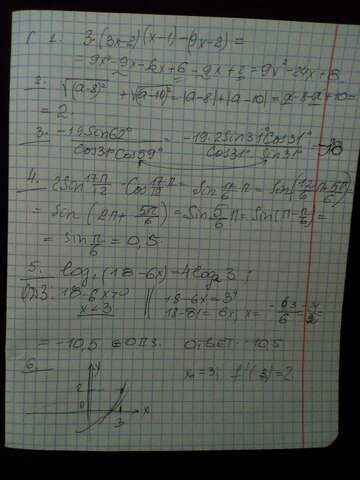 1. 3·(3x-2)(x-1)-(9x-2)=
=9x²-9x-6x+6-9x+2=9x²-24x+8
2. √(a-8)² + √(a-10)² = |a-8|+|a-10|= a-8-a+10=
=2
3. -19Sin62° / Cos31°Cos59° = -19·2Sin31°Cos31° / Cos31° Sin31° = -38
4. 2Sin 17π/12 · Cos 17π/12 = Sin 17/6 π = Sin(12/6 π + 5π/6)
= Sin(2π + 5π/6) = Sin 5/6 π = Sin(π - π/6) =
= Sin π/6 = 0,5
5. log₂(18-6x)=4log₂3;
ОДЗ: 18-6x>0 18-6x=3⁴
x<3 18-81=6x; x= -63/6 = -21/2 =
= -10,5 ∈ ОДЗ. Ответ: -10,5
6. y x₀=3; f'(3)=2
2
0 3 x